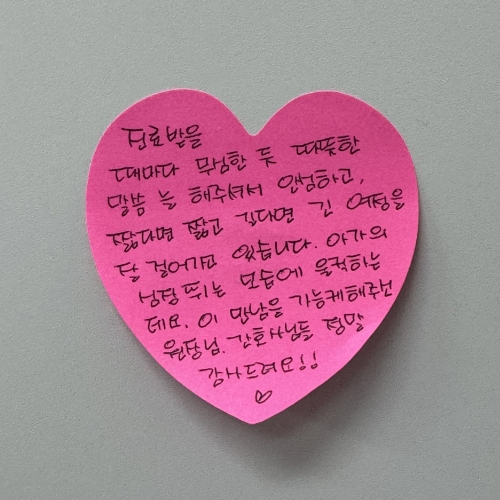 진료받을
때마다 무심한 듯 따뜻한
말씀 늘 해주셔서 안심하고,
짧다면 짧고 길다면 긴 여정을
잘 걸어가고 있습니다. 아가의
심장 뛰는 모습에 울컥하는
데요. 이 만남을 가능케해주신
원장님. 간호사님들 정말
감사드려요!!
♡